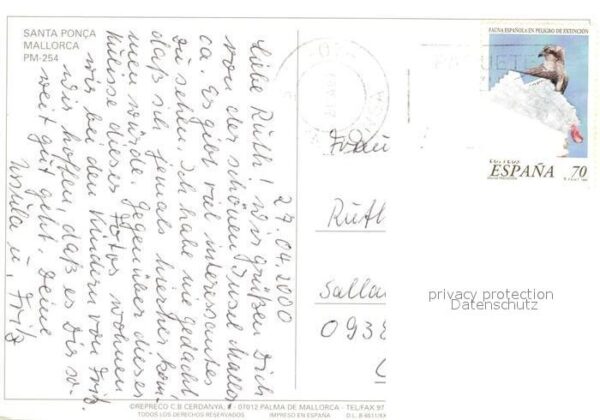 SANTA PONÇA
MALLORCA
PM-254
27.04.2000
Liebe Ruth! Wir grüßen Dich
von der schönen Insel Mallor
ca. Es gibt viel interessantes
zu sehen. Ich habe nie gedacht
daß ich jemals hierher kom-
men würde. Gegenüber dieses
Kulisse dieses Fotos wohnen
wir bei den Kindern von Fritz.
Wir hoffen, daß es Dir so-
weit gut geht. Deine
Ursula u. Fritz
FAUNA ESPAÑOLA EN PELIGRO DE EXTINCIÓN
CORREOS
ESPAÑA 70
Frau
Ruth
Salla
0938
privacy protection
Datenschutz
©REPRECO C.B. CERDANYA, - 07012 PALMA DE MALLORCA - TEL/FAX 97
TODOS LOS DERECHOS RESERVADOS IMPRESO EN ESPAÑA